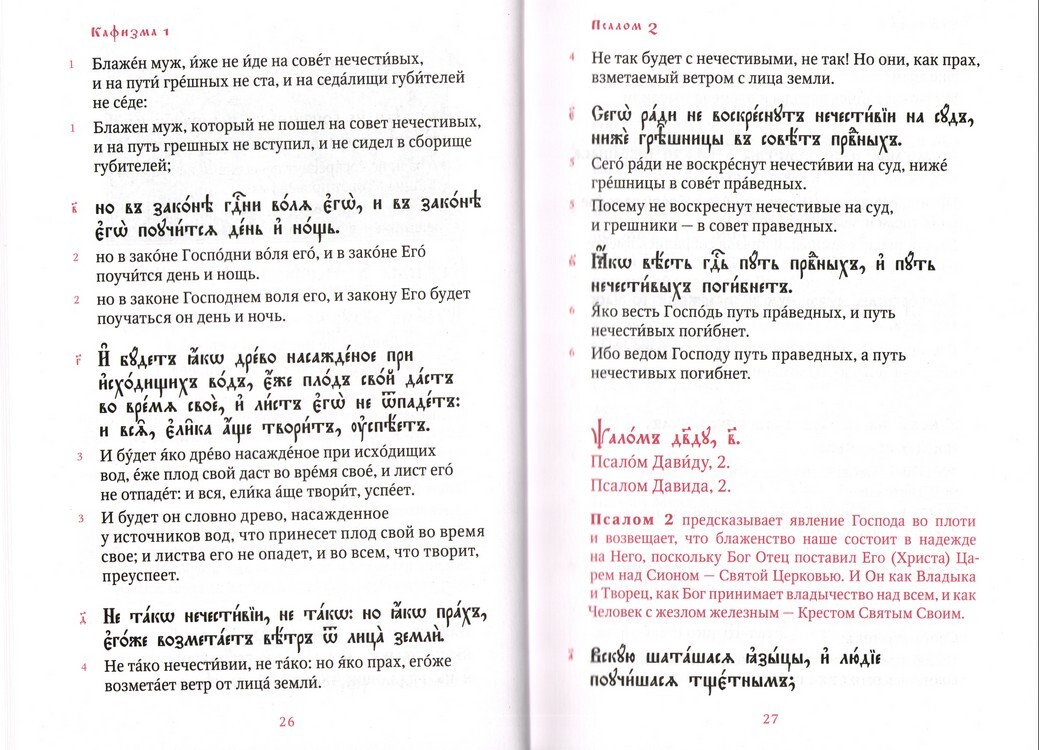 Кафизма 1
1 Блаже́н муж, и́же не и́де на сове́т нечести́вых,
и на пути́ гре́шных не ста, и на седа́лищи губи́телей
не се́де:
1 Блажен муж, который не пошел на совет нечестивых,
и на путь грешных не вступил, и не сидел в сборище
губителей;
в҃ но въ зако́нѣ гдⷭ҇ни во́лѧ є҆гѡ̀, и҆ въ зако́нѣ
є҆гѡ̀ поꙋчи́тсѧ де́нь и҆ но́щь.
2 но в зако́не Госпо́дни во́ля его́, и в зако́не Его́
поучи́тся день и нощь.
2 но в законе Господнем воля его, и закону Его будет
поучаться он день и ночь.
г҃ И҆ бꙋ́детъ ꙗ҆́кѡ дре́во насажде́ное при
и҆схо́дищихъ во́дъ, є҆́же пло́дъ сво́й да́стъ
во вре́мѧ своѐ, и҆ ли́стъ є҆гѡ̀ не ѿпаде́тъ:
и҆ всѧ̑, є҆ли̑ка а҆́ще твори́тъ, ᲂу҆спѣ́етъ.
3 И бу́дет я́ко дре́во насажде́ное при исхо́дищих
вод, е́же плод свой даст во вре́мя свое́, и лист его́
не отпаде́т: и вся, ели́ка а́ще твори́т, успе́ет.
3 И будет он словно древо, насажденное
у источников вод, что принесет плод свой во время
свое; и листва его не опадет, и во всем, что творит,
преуспеет.
д҃ Не та́кѡ нечести́вїи, не та́кѡ: но ꙗ҆́кѡ пра́хъ,
є҆го́же возмета́етъ вѣ́тръ ѿ лица̀ землѝ.
4 Не та́ко нечести́вии, не та́ко: но я́ко прах, его́же
возмета́ет ветр от лица́ земли́.
26
Псалом 2
4 Не так будет с нечестивыми, не так! Но они, как прах,
взметаемый ветром с лица земли.
є҃ Сегѡ̀ ра́ди не воскре́снꙋтъ нечести́вїи на сꙋ́дъ,
нижѐ грѣ̑шницы въ совѣ́тъ првⷣныхъ.
5 Сего́ ра́ди не воскре́снут нечести́вии на суд, ниже́
гре́шницы в сове́т пра́ведных.
5 Посему не воскреснут нечестивые на суд,
и грешники — в совет праведных.
ѕ҃ Ꙗ҆́кѡ вѣ́сть гдⷭ҇ь пꙋ́ть првⷣныхъ, и҆ пꙋ́ть
нечести́выхъ поги́бнетъ.
6 Я́ко весть Госпо́дь путь пра́ведных, и путь
нечести́вых поги́бнет.
6 Ибо ведом Господу путь праведных, а путь
нечестивых погибнет.
Ѱало́мъ дв҃дꙋ, в҃.
Псало́м Дави́ду, 2.
Псалом Давида, 2.
Псалом 2 предсказывает явление Господа во плоти
и возвещает, что блаженство наше состоит в надежде
на Него, поскольку Бог Отец поставил Его (Христа) Ца-
рем над Сионом — Святой Церковью. И Он как Владыка
и Творец, как Бог принимает владычество над всем, и как
Человек с жезлом железным — Крестом Святым Своим.
а҃ Вскꙋ́ю шата́шасѧ ꙗ҆зы́цы, и҆ лю́дїе
поꙋчи́шасѧ тщє́тнымъ;
27